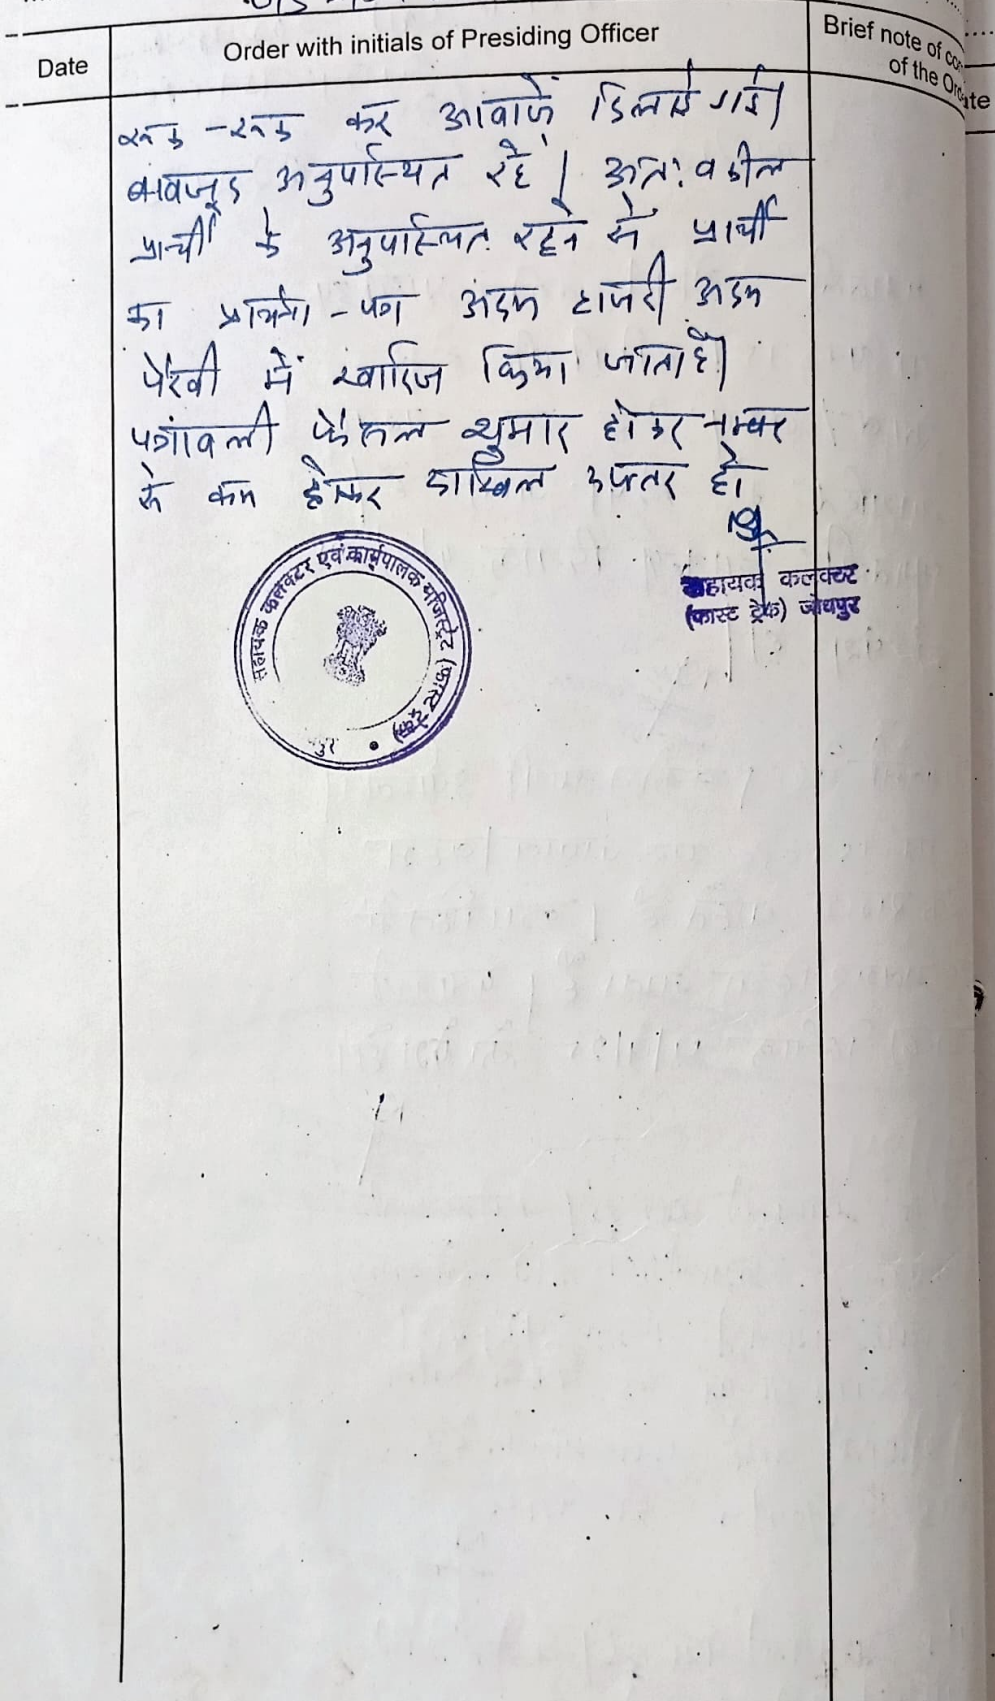 Date
Order with initials of Presiding Officer
Brief note of
of the
रूक -रूक कर आवाजें दिलाई गई।
बावजूद अनुपस्थित रहे। अतः वकील
प्रार्थी के अनुपस्थित रहने से प्रार्थी
का प्रार्थना-पत्र अदम हाजरी अदम
पैरवी में खारिज किया जाता है।
पत्रावली फैसल शुमार होकर नम्बर
से कम होकर दाखिल दफ्तर हो
सहायक कलक्टर
(फास्ट ट्रेक) जोधपुर
सहायक कलक्टर एवं कार्यपालक मजिस्ट्रेट (फास्ट ट्रेक)